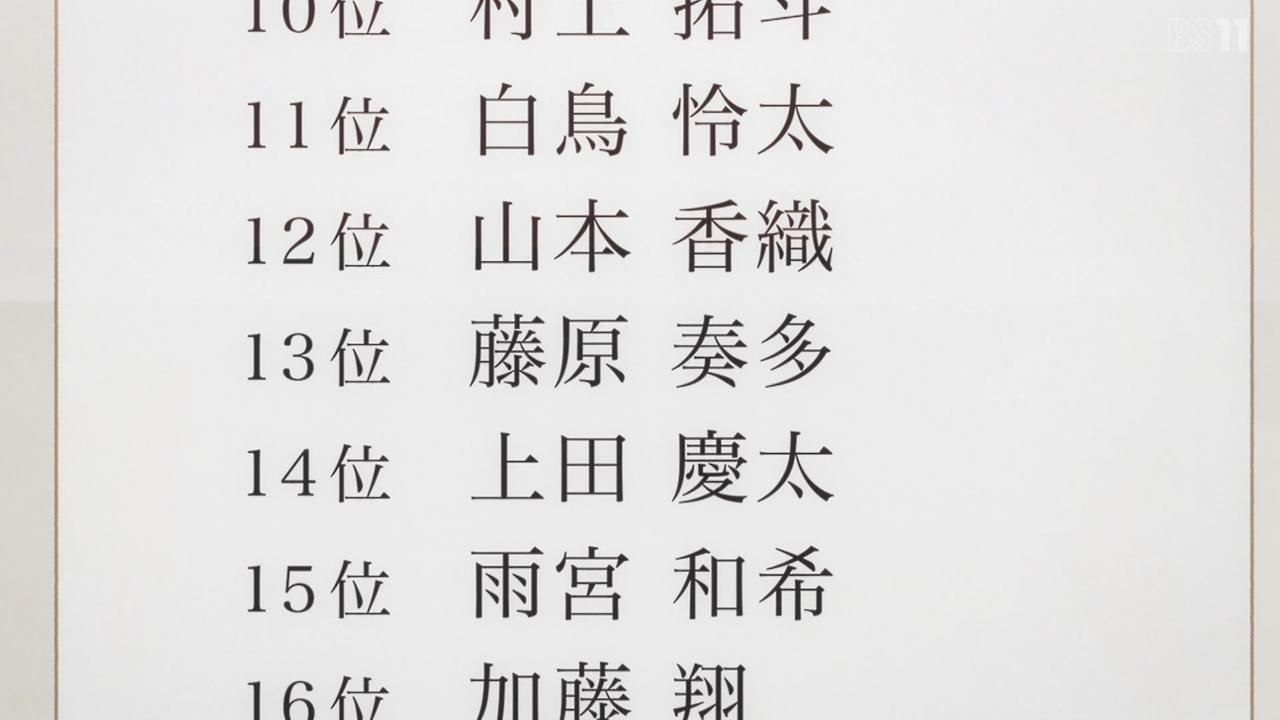 BS11
10位 村上 拓斗
11位 白鳥 怜太
12位 山本 香織
13位 藤原 奏多
14位 上田 慶太
15位 雨宮 和希
16位 加藤 翔